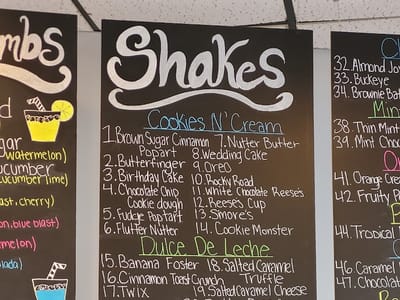 mbs
d
ugar
watermelon)
cucumber
cucumber lime)
ast, cherry)
on, blue blast)
melon)
olada)
Shakes
Cookies N' Cream
1. Brown Sugar Cinnamon Popart
2. Butterfinger
3. Birthday Cake
4. Chocolate Chip Cookie dough
5. Fudge Poptart
6. Fluffer Nutter
7. Nutter Butter
8. Wedding Cake
9. Oreo
10. Rocky Road
11. White Chocolate Reese's
12. Reese's Cup
13. Smore's
14. Cookie Monster
Dulce De Leche
15. Banana Foster
16. Cinnamon Toast Crunch
17. Twix
18. Salted Caramel Truffle
19. Salted Caramel Cheese
Ch
32. Almond Joy
33. Buckeye
34. Brownie Bat
Mint
38. Thin Mint
39. Mint Choc
Or
41. Orange Crea
42. Fruity P
44. Tropical
46. Caramel
47. Chocolate